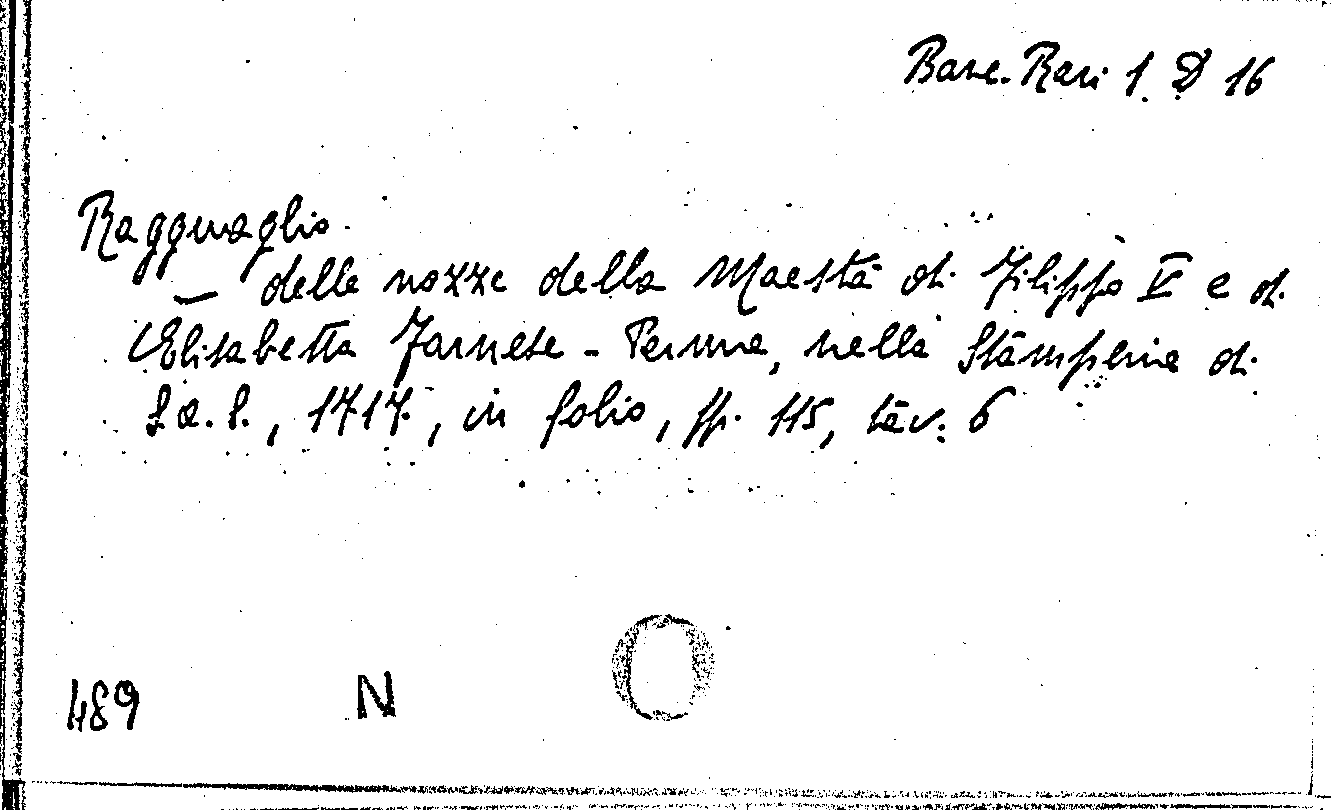 Banc. Rari 1. D 16
Ragguaglio.
— delle nozze della Maestà di Filippo V e di
Elisabetta Farnese - Parma, nella Stamperia di
S.A.S., 1717, in folio, pp. 115, tav. 6
489 N